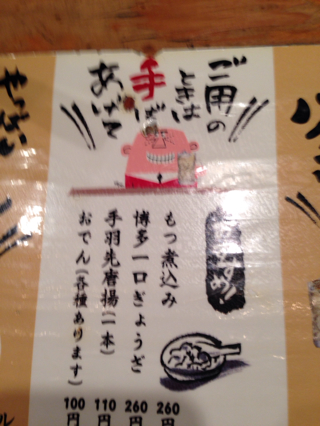 ご用の
ときは
手ば
あげて
おすすめ!
もつ煮込み
260円
博多一口ぎょうざ
260円
手羽先唐揚(一本)
110円
おでん(各種あります)
100円